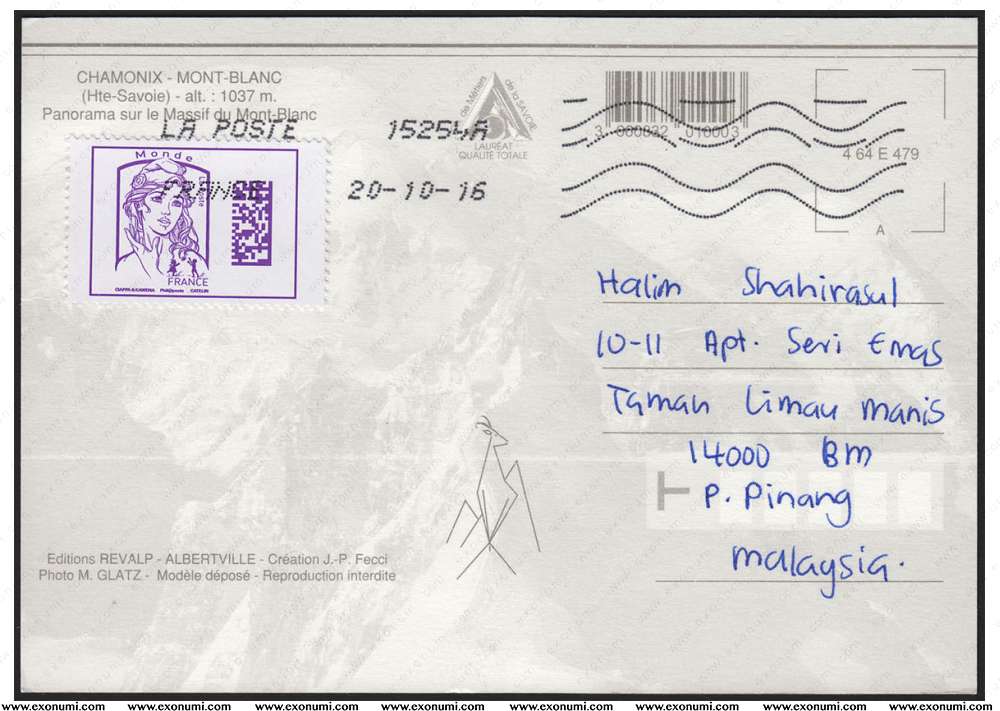 CHAMONIX - MONT-BLANC
(Hte-Savoie) - alt. : 1037 m.
Panorama sur le Massif du Mont-Blanc
LA POSTE 15254A
FRANCE 20-10-16
Monde
La Poste
FRANCE
CIAPPA & KAWENA Phil@poste CATELIN
de Métiers de la SAVOIE
LAURÉAT
QUALITÉ TOTALE
3 000032 010003
4 64 E 479
A
Halim Shahirasul
10-11 Apt. Seri Emas
Taman Limau manis
14000 BM
P. Pinang
malaysia.
Editions REVALP - ALBERTVILLE - Création J.-P. Fecci
Photo M. GLATZ - Modèle déposé - Reproduction interdite
www.exonumi.com www.exonumi.com www.exonumi.com www.exonumi.com www.exonumi.com www.exonumi.com www.exonumi.com